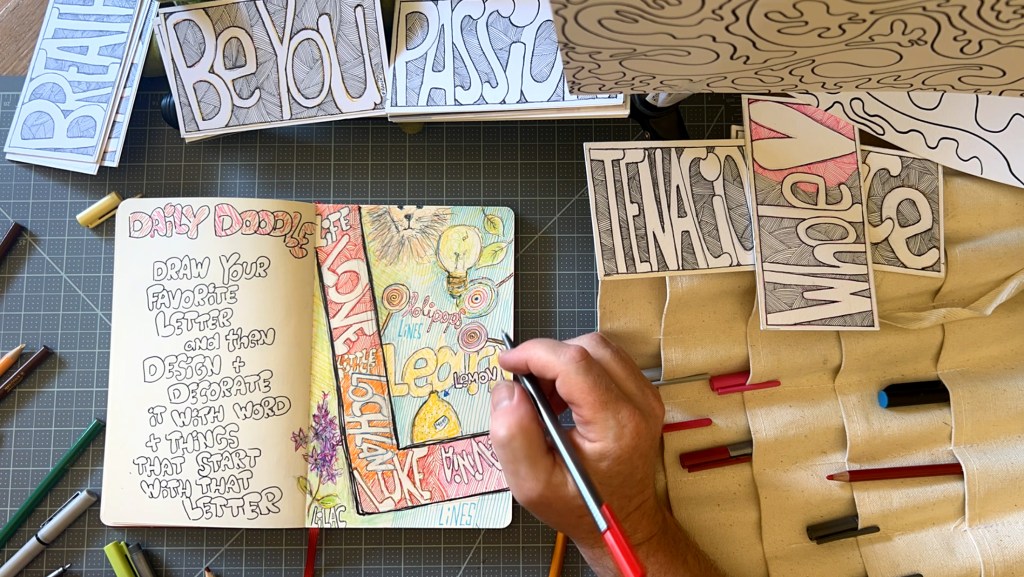 BREATH
Be You
PASSiO
TENACiO
Whole
ce
DAILY DOODLE
DRAW YOUR
FAVORITE
LETTER
and then
DESIGN +
DECORATE
it WITH WORD
+ THINGS
THAT START
WITH THAT
LETTER
LIFE
LOVE
LITTLE
LOCHLAN
LUKE
lollipops
LINES
Learn
LEMON
LILAC
LINES